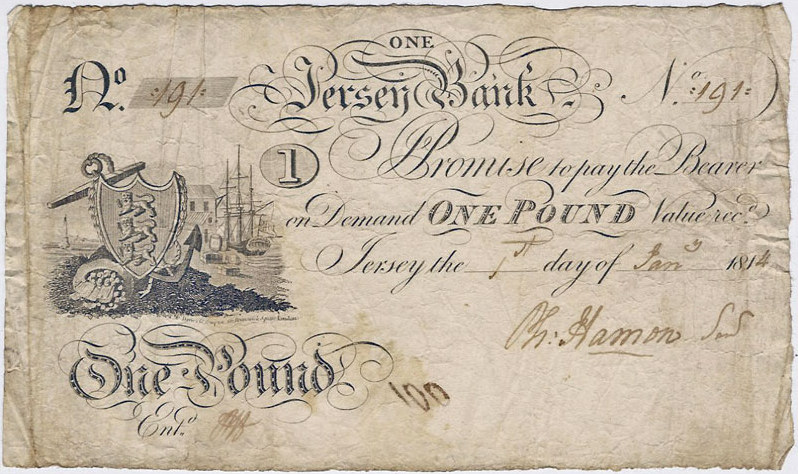 ONE
No. :191: Jersey Bank No. :191:
1 I Promise to pay the Bearer
on Demand ONE POUND Value recd.
Jersey the 1st day of Jany 1814
Ph: Hamon
One Pound
100
Entd.